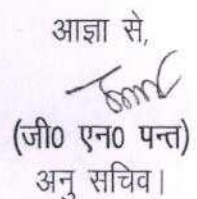 आज्ञा से,
(जी0 एन0 पन्त)
अनु सचिव।